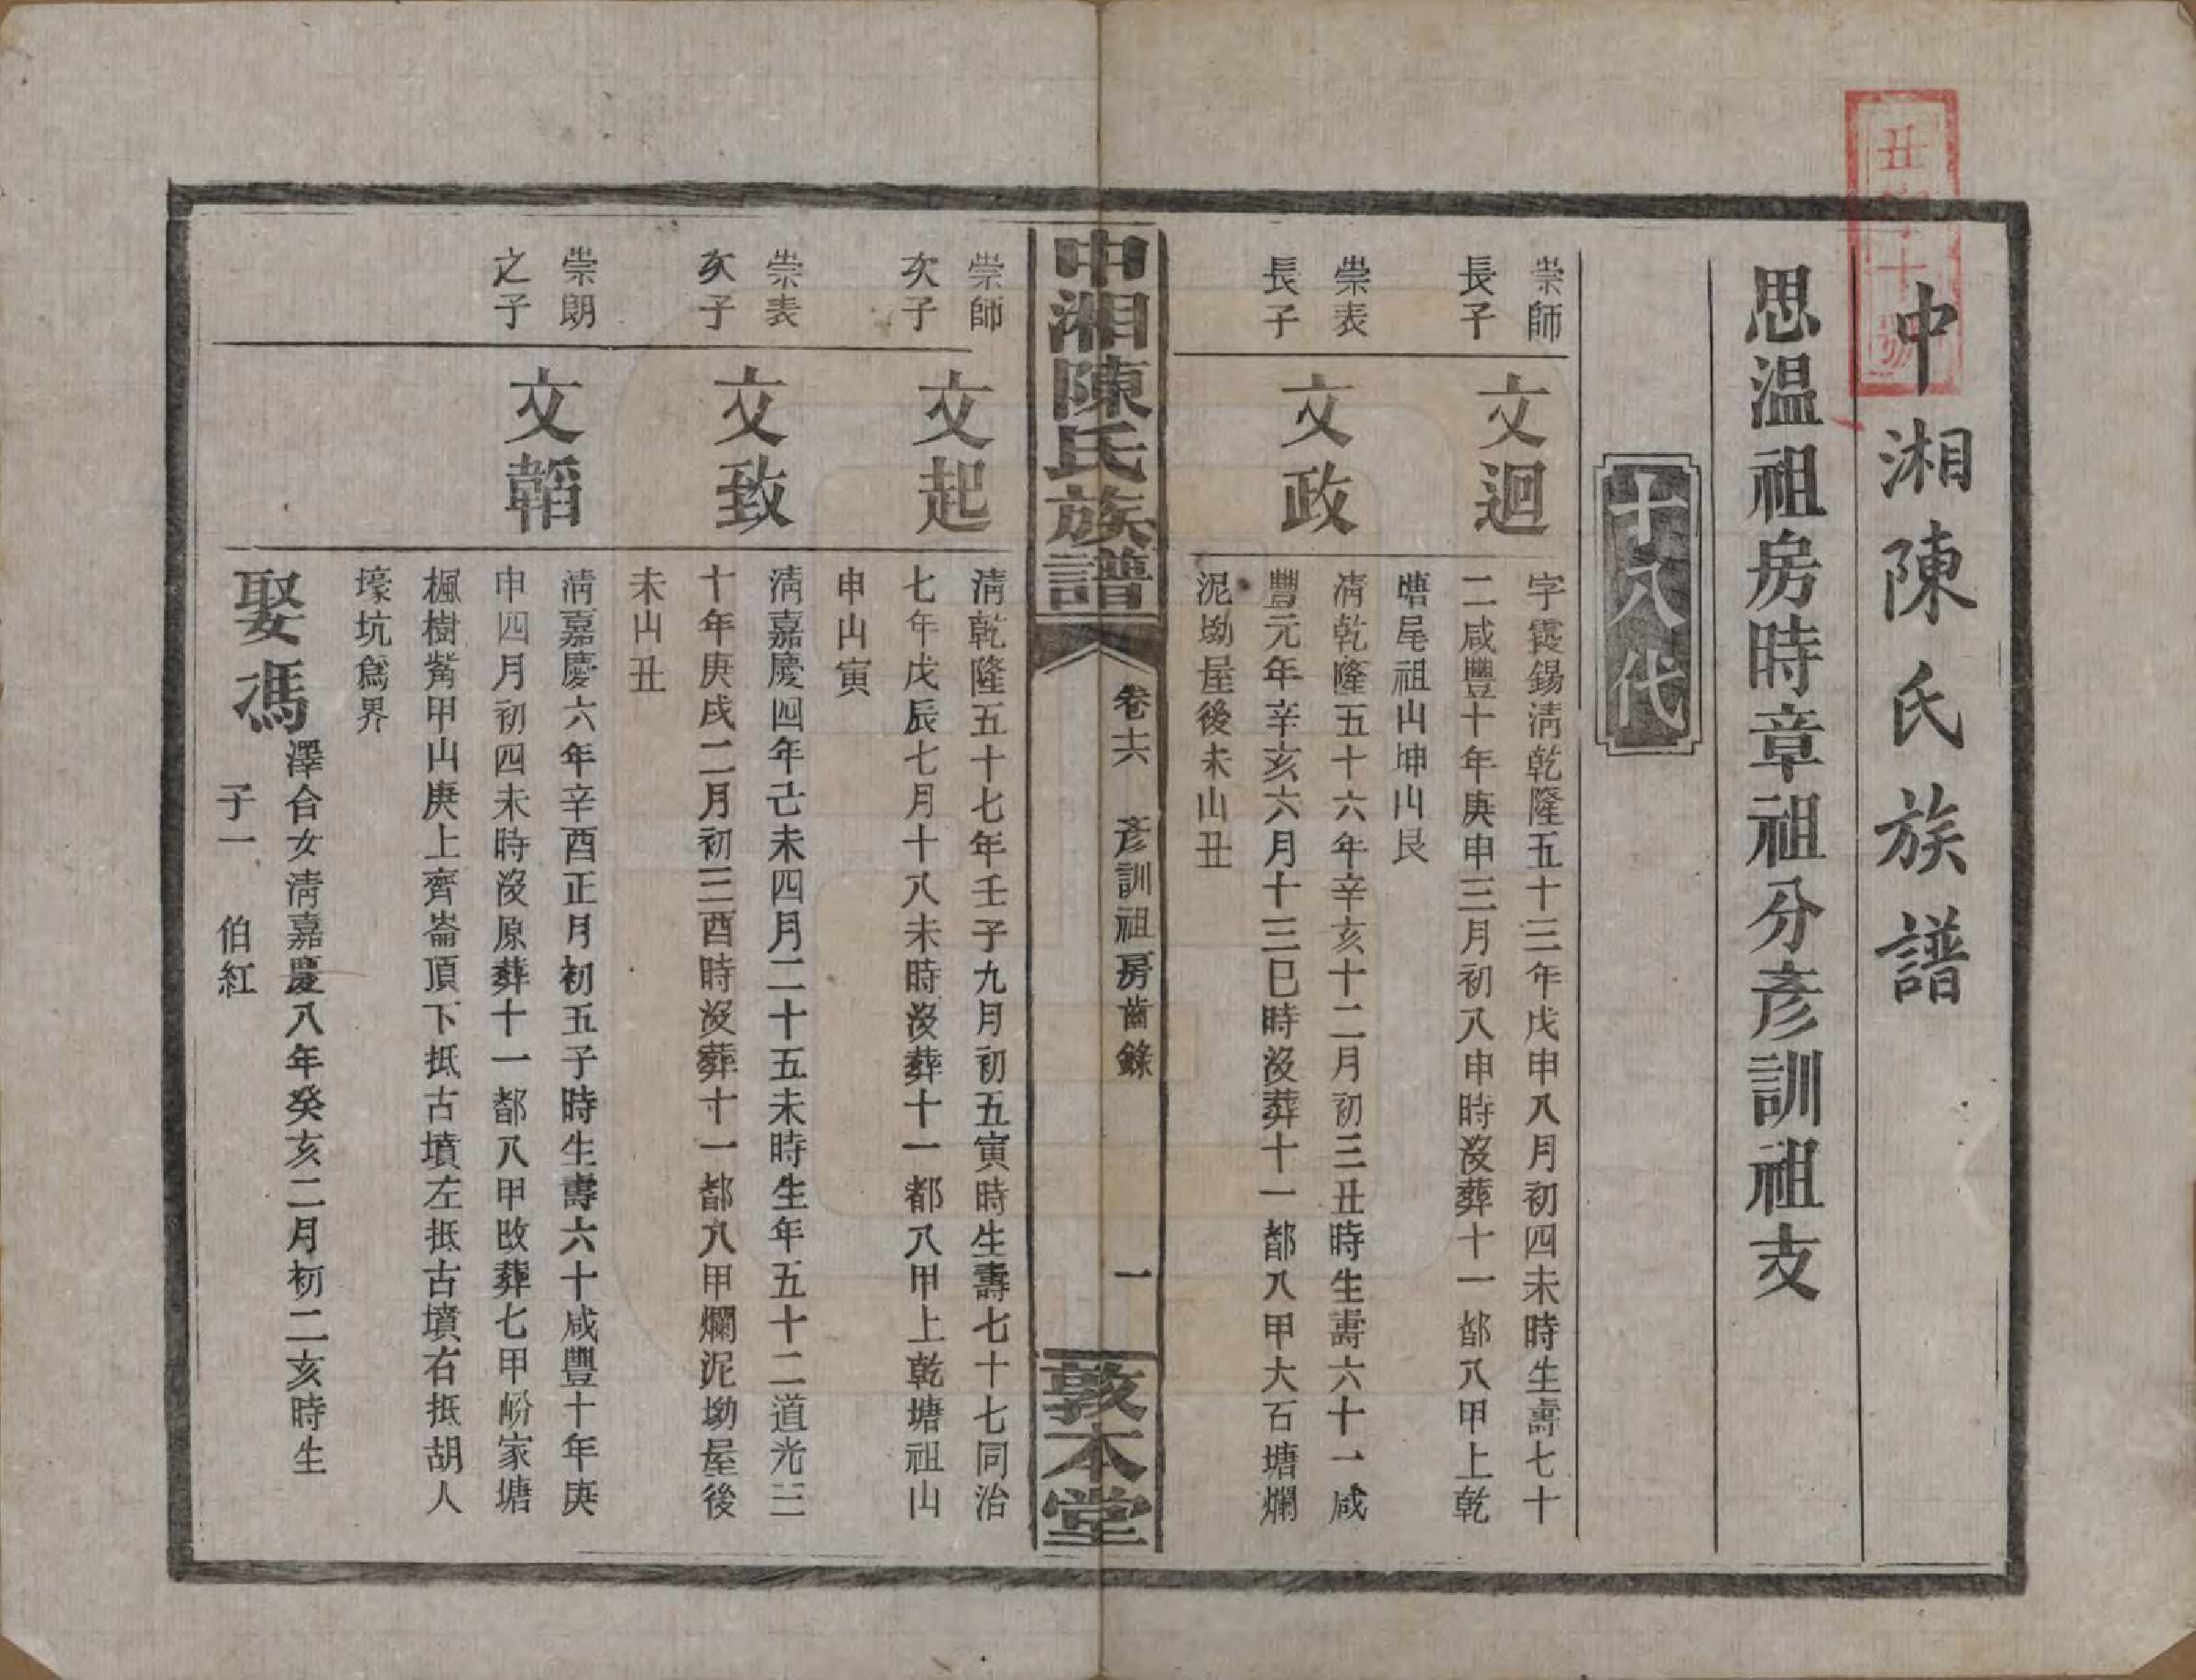 中湘陳氏族譜
思温祖房時章祖分彥訓祖支
十八代
崇師
長子
文迴
字霞錫清乾隆五十三年戊申八月初四未時生壽七十
二咸豐十年庚申三月初八申時沒葬十一都八甲上乾
塘尾祖山坤山艮
崇表
長子
文政
清乾隆五十六年辛亥十二月初三丑時生壽六十一咸
豐元年辛亥六月十三巳時沒葬十一都八甲大石塘爛
泥坳屋後未山丑
中湘陳氏族譜
卷六
彥訓祖房齒錄
一
敦本堂
崇師
次子
文起
清乾隆五十七年壬子九月初五寅時生壽七十七同治
七年戊辰七月十八未時沒葬十一都八甲上乾塘祖山
申山寅
崇表
次子
文致
清嘉慶四年己未四月二十五未時生年五十二道光三
十年庚戌二月初三酉時沒葬十一都八甲爛泥坳屋後
未山丑
崇朗
之子
文韜
清嘉慶六年辛酉正月初五子時生壽六十咸豐十年庚
申四月初四未時沒原葬十一都八甲改葬七甲份家塘
楓樹觜甲山庚上齊崙頂下抵古墳左抵古墳右抵胡人
壕坑爲界
娶馮
澤合女清嘉慶八年癸亥二月初二亥時生
子一 伯紅